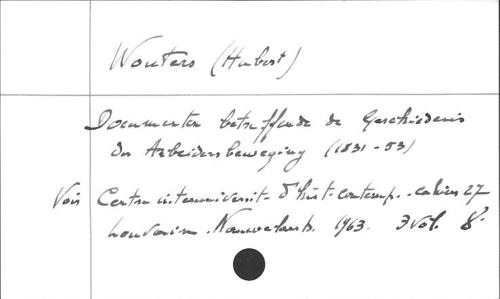 Wouters (Hubert)
Documenten betreffende de Geschiedenis
der Arbeidersbeweging (1831-53)
Voir Centre interuniversit. d'hist. contemp. - cahiers 27
Louvain. Nauwelaerts. 1963. 3 vol. 8°